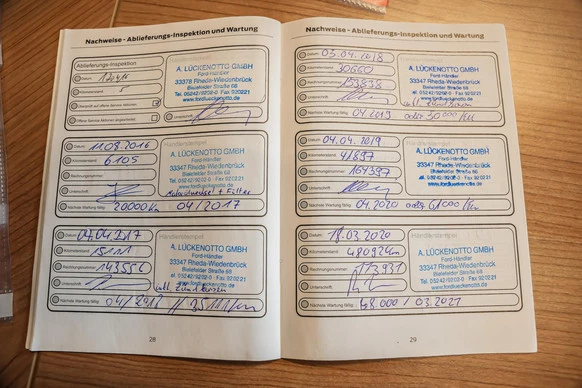 Nachweise - Ablieferungs-Inspektion und Wartung
Ablieferungs-Inspektion
Datum:
Kilometerstand: 5
Überprüft auf offene Service Aktionen
Offene Service Aktionen durchgeführt
A. LÜCKENOTTO GMBH
Ford-Händler
33378 Rheda-Wiedenbrück
Bielefelder Straße 68
Tel. 05242/9202-0 · Fax 920221
www.fordlueckenotto.de
Unterschrift
Datum: 11.08.2016
Kilometerstand: 6105
Rechnungsnummer:
Unterschrift:
Händlerstempel
A. LÜCKENOTTO GMBH
Ford-Händler
33347 Rheda-Wiedenbrück
Bielefelder Straße 68
Tel. 05242/9202-0 · Fax 920221
+ Filter
Nächste Wartung fällig: 20000 Km 04/2017
Datum: 04.04.2017
Kilometerstand: 15111
Rechnungsnummer: 143556
Unterschrift:
Händlerstempel
A. LÜCKENOTTO GMBH
Ford-Händler
33347 Rheda-Wiedenbrück
Bielefelder Straße 68
Tel. 05242/9202-0 · Fax 920221
www.fordlueckenotto.de
Nächste Wartung fällig:
28
Nachweise - Ablieferungs-Inspektion und Wartung
Datum: 05.04.2018
Kilometerstand: 30660
Rechnungsnummer: 153838
Unterschrift:
A. LÜCKENOTTO GMBH
Ford-Händler
33347 Rheda-Wiedenbrück
Bielefelder Straße 68
Tel. 05242/9202-0 · Fax 920221
www.fordlueckenotto.de
Nächste Wartung fällig: 04.2019 oder 50000 Km
Datum: 04.04.2019
Kilometerstand: 41897
Rechnungsnummer: 164397
Unterschrift:
Händlerstempel
A. LÜCKENOTTO GMBH
Ford-Händler
33347 Rheda-Wiedenbrück
Bielefelder Straße 68
Tel. 05242/9202-0 · Fax 920221
www.fordlueckenotto.de
Nächste Wartung fällig: 04.2020 oder 61000 Km
Datum: 18.03.2020
Kilometerstand: 48092 km
Rechnungsnummer: 173931
Unterschrift:
Händlerstempel
A. LÜCKENOTTO GMBH
Ford-Händler
33347 Rheda-Wiedenbrück
Bielefelder Straße 68
Tel. 05242/9202-0 · Fax 920221
www.fordlueckenotto.de
Nächste Wartung fällig: 68.000 / 03.2021
29